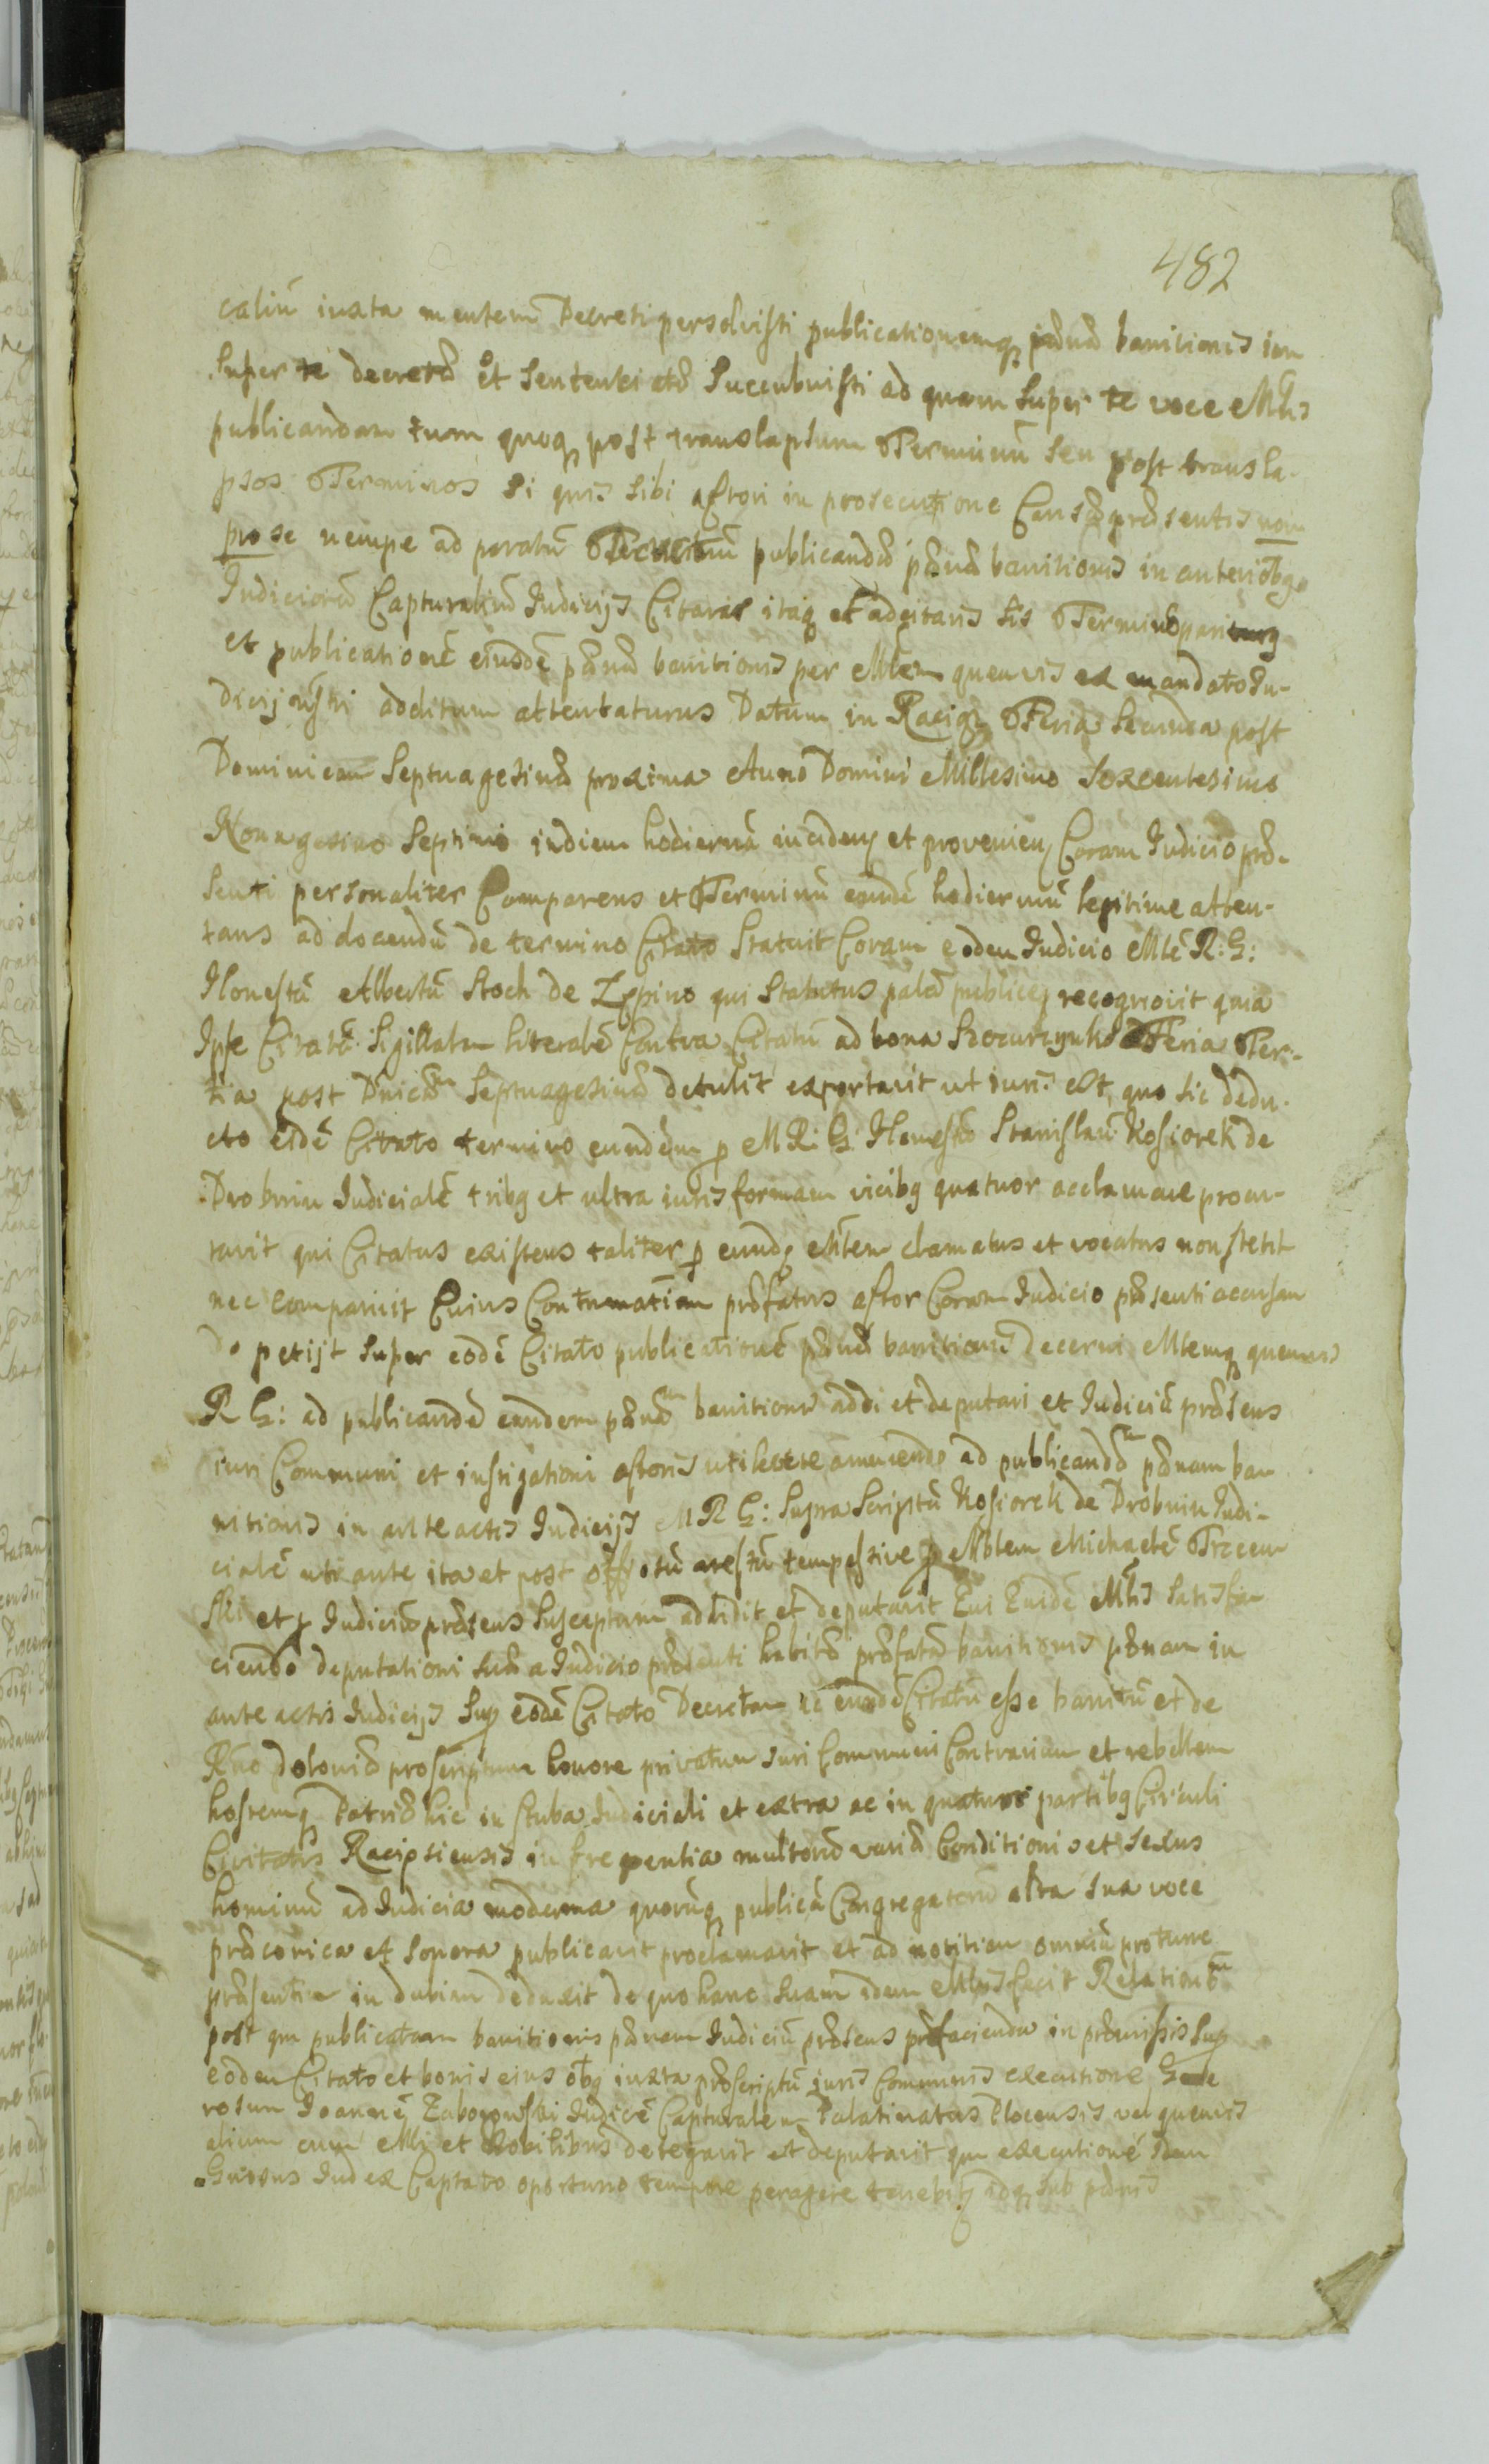 482
caliũ iuxta mentem Decreti persolvisti publicationemq pænæ banitionis in
super te decretæ et sententiatæ Succubuisti ad quam super te voce Mlis
publicandam tum quoq post translapsum Terminũ seu post transla-
psos Terminos si quis sibi actori in prosecutione Causæ præsentis non
pro se nempe ad paratũ Terminũ publicandæ pænæ banitionis in anteriobg
Iudiciorũ Capturaliũ Iudicijs Citaris itaq et adcitaris sis Termino pariturg
et publicationẽ eiusdẽ pænæ banitionis per Mlem quemvis ex mandato Iu-
dicij nostri additum attentaturus Datum in Raciąz Feria Secunda post
Dominicam Septuagesimæ proxima Anno Domini Millesimo Sexcentesimo
Nonagesimo Septimo in diem hodiernã inciden et provenien Coram Iudicio præ-
senti personaliter Comparens et Terminũ eundẽ hodiernũ legitime atten-
tans ad docendũ de termino Citato Statuit Coram eodem Iudicio Mlẽ R: G:
Honestũ Albertũ Stoch de qui Statutus palã publiceq recognovit quia
Ipse Citatõ Sigillatam literalẽ Contra Citatũ ad bona Feria Ter-
tia post Dnicãm Septuagesimæ detulit exportavit ut iuris est, quo sic dedu-
cto eidẽ Citato termino eundem p M R: G: Honestũ Stanislaũ Kosiorek de
Drobnin Iudicialẽ tribg et ultra iuris formam vicibg quatuor acclamare procu-
ravit qui Citatus existens taliter p eundẽ Mlem clamatus et vocatus non stetit
nec comparuit Cuius Contumatiam præfatus actor Coram Iudicio præsenti accusan
do petijt super eodẽ Citato publicationẽ pænæ banitionis decerni Mlemq quemvis
R G: ad publicandã eandem pænãm banitionis addi et deputari et Iudiciũ præsens
iuri Communi et instigationi actoris uti annuendo ad publicandãm pænam ban
nitionis in ante actis Iudicijs M R G: Supra Scriptũ Kosiorek de Drobnin Iudi-
cialẽ uti ante ita et post offi tempestive p Mlem Michaelẽ Trzcin
ski et p Iudiciũ præsens Susceptum addidit et deputavit Qui Quidẽ Mlis satisfa-
ciendo deputationi suæ a Iudicio præsenti habitæ præfatã banitionis pænam in
ante actis Iudicijs Sup eodẽ Citato Decretam ac eundẽ Citatũ esse banitũ et de
Rño Poloniæ proscriptum honore privatum iuri Communi Contrarium et rebellem
hostemq Patriæ hic in stuba Iudiciali et extra ac in quatuor partibg Circuli
Civitatis Raciąsiensis in frequentia multorũ variæ Conditionis et sexus
hominũ ad Iudicia moderna quorũq publicã Congregatorũ alta sua voce
præconica et sonora publicavit proclamavit et ad notitiam omniũ pro tunc
præsentia in dubiam deduxit de quo hanc suam idem Mlis fecit Relationẽm
post qm publicatam banitionis pænam Iudiciũ præsens præfacienda in præmissis sup
eodem Citato et bonis eius obg iuxta præscriptũ iuris Communis executione Gene
rosum Ioannẽ Zaborowski Iudicẽ Capturalem Palatinatus Plocensis vel quemvis
alium cum Mli et Nobilibus delegavit et deputavit qm executionẽ idem
Gnrosus Iudex Captato oportuno tempore peragere tenebitz idq sub pænis